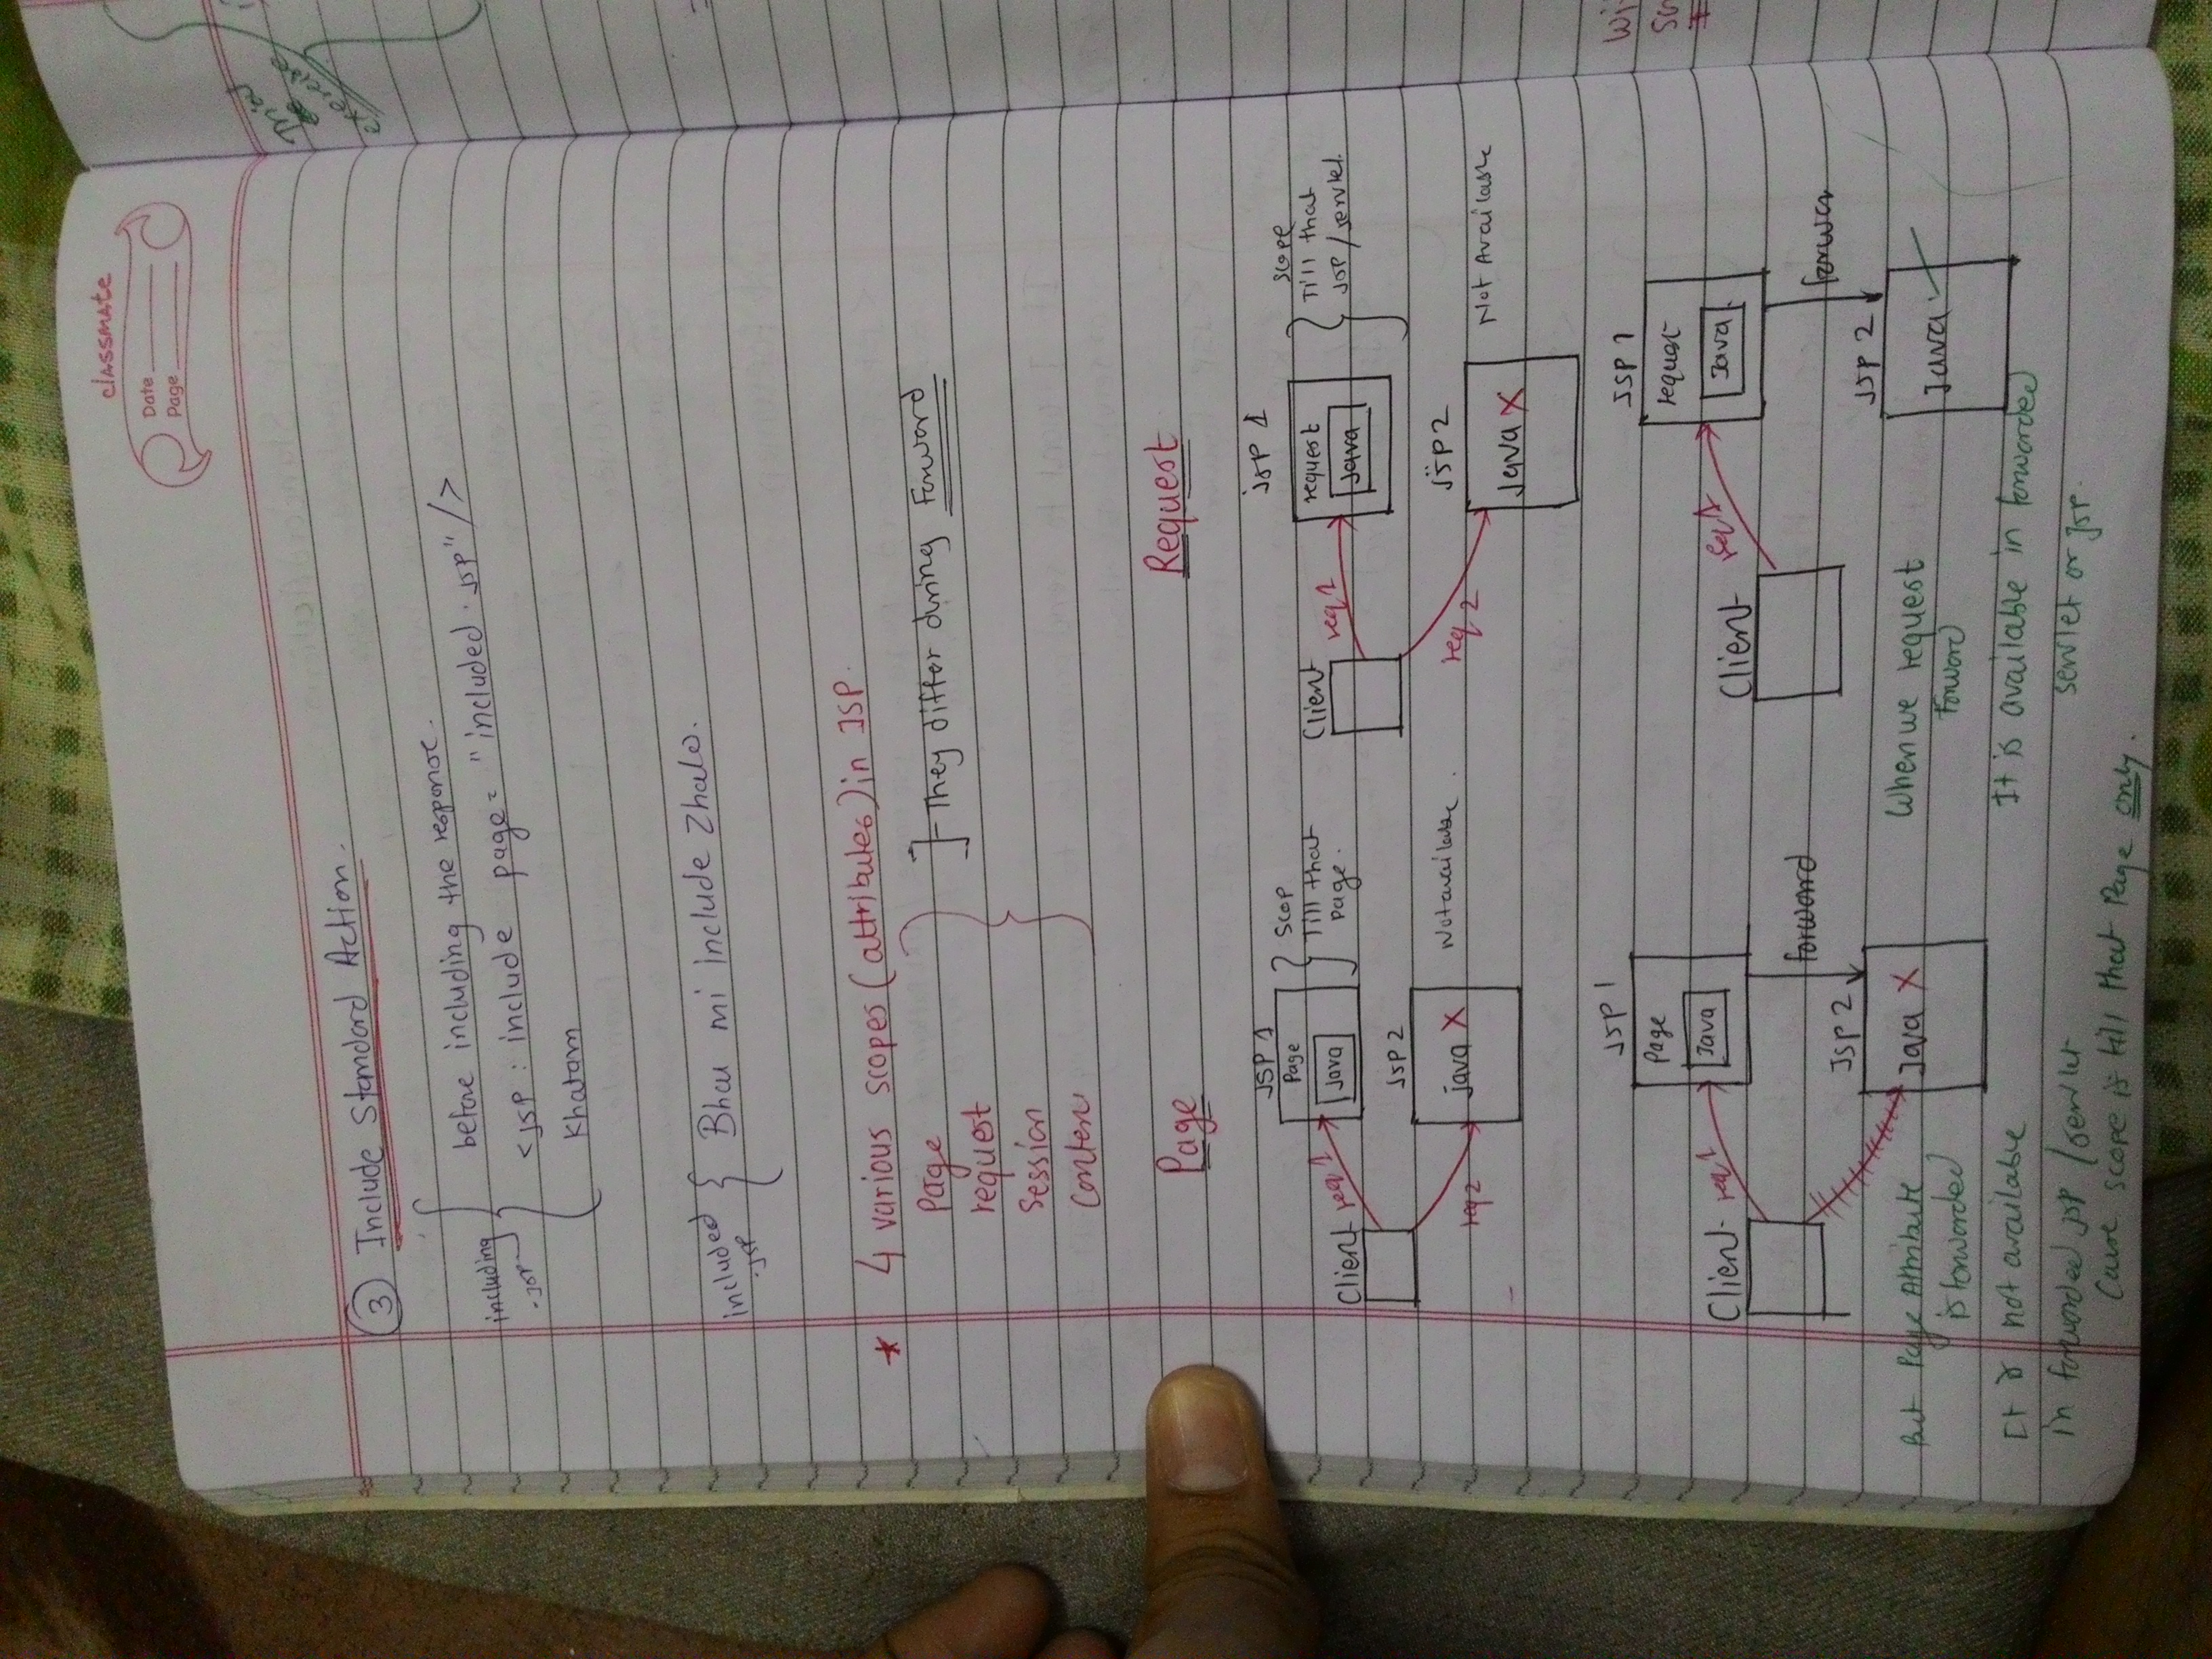 classmate
Date
Page
③ Include Standard Action.
including
.JSP
before including the response.
<jsp : include page = "included.jsp" />
Khatam
included
.JSP
Bhau mi include Zhalo.
* 4 various scopes (attributes) in JSP.
Page
request
Session
Contex
They differ during Forward
Page
Request
JSP 1
Page
Java
Scop
Till that
page.
Client
req 1
JSP 2
req 2
java X
Not available.
jsp 1
request
Java
scope
Till that
JSP/servlet.
Client
req 1
jsp 2
req 2
Java X
Not Available
JSP 1
Page
Java
Client
req 1
forward
JSP 2
Java X
But Page Attribute
is forwarded
It is not available
in forwarded jsp/servlet
Cause scope is till that Page only.
JSP 1
request
Java
Client
req 1
forwar
JSP 2
Java ✓
When we request
Forword
It is available in forwarded
servlet or jsp.
Trial
exercise
Wi